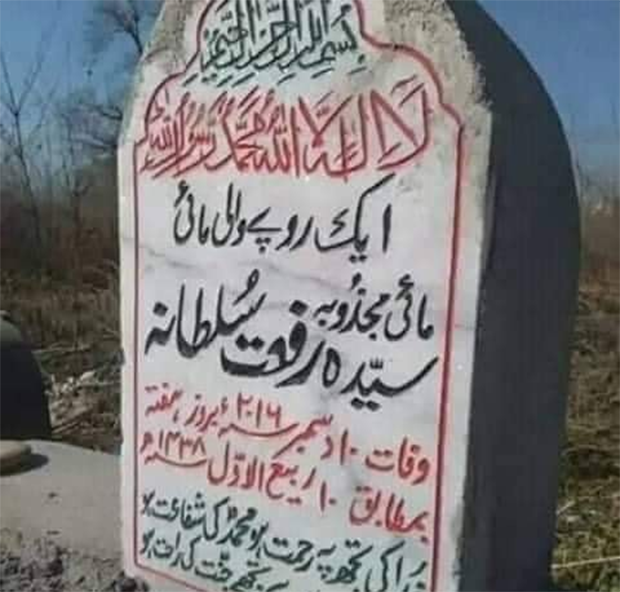 بِسْمِ اللهِ الرَّحْمٰنِ الرَّحِيْمِ
لَا اِلٰهَ اِلَّا اللهُ مُحَمَّدٌ رَّسُوْلُ اللهِ
ایک روپے والی مائی
مائی مجذُوبہ
سیّدہ رفعت سُلطانہ
وفات ۱۰ دسمبر ۲۰۱۶ سنہء بروز ہفتہ
بمطابق ۱۰ ربیع الاوّل ۱۴۳۸ سنہ ھ
کی تجھ پہ رحمت ہو محمدؐ کی شفاعت ہو
تجھے جنّت کی راحت ہو